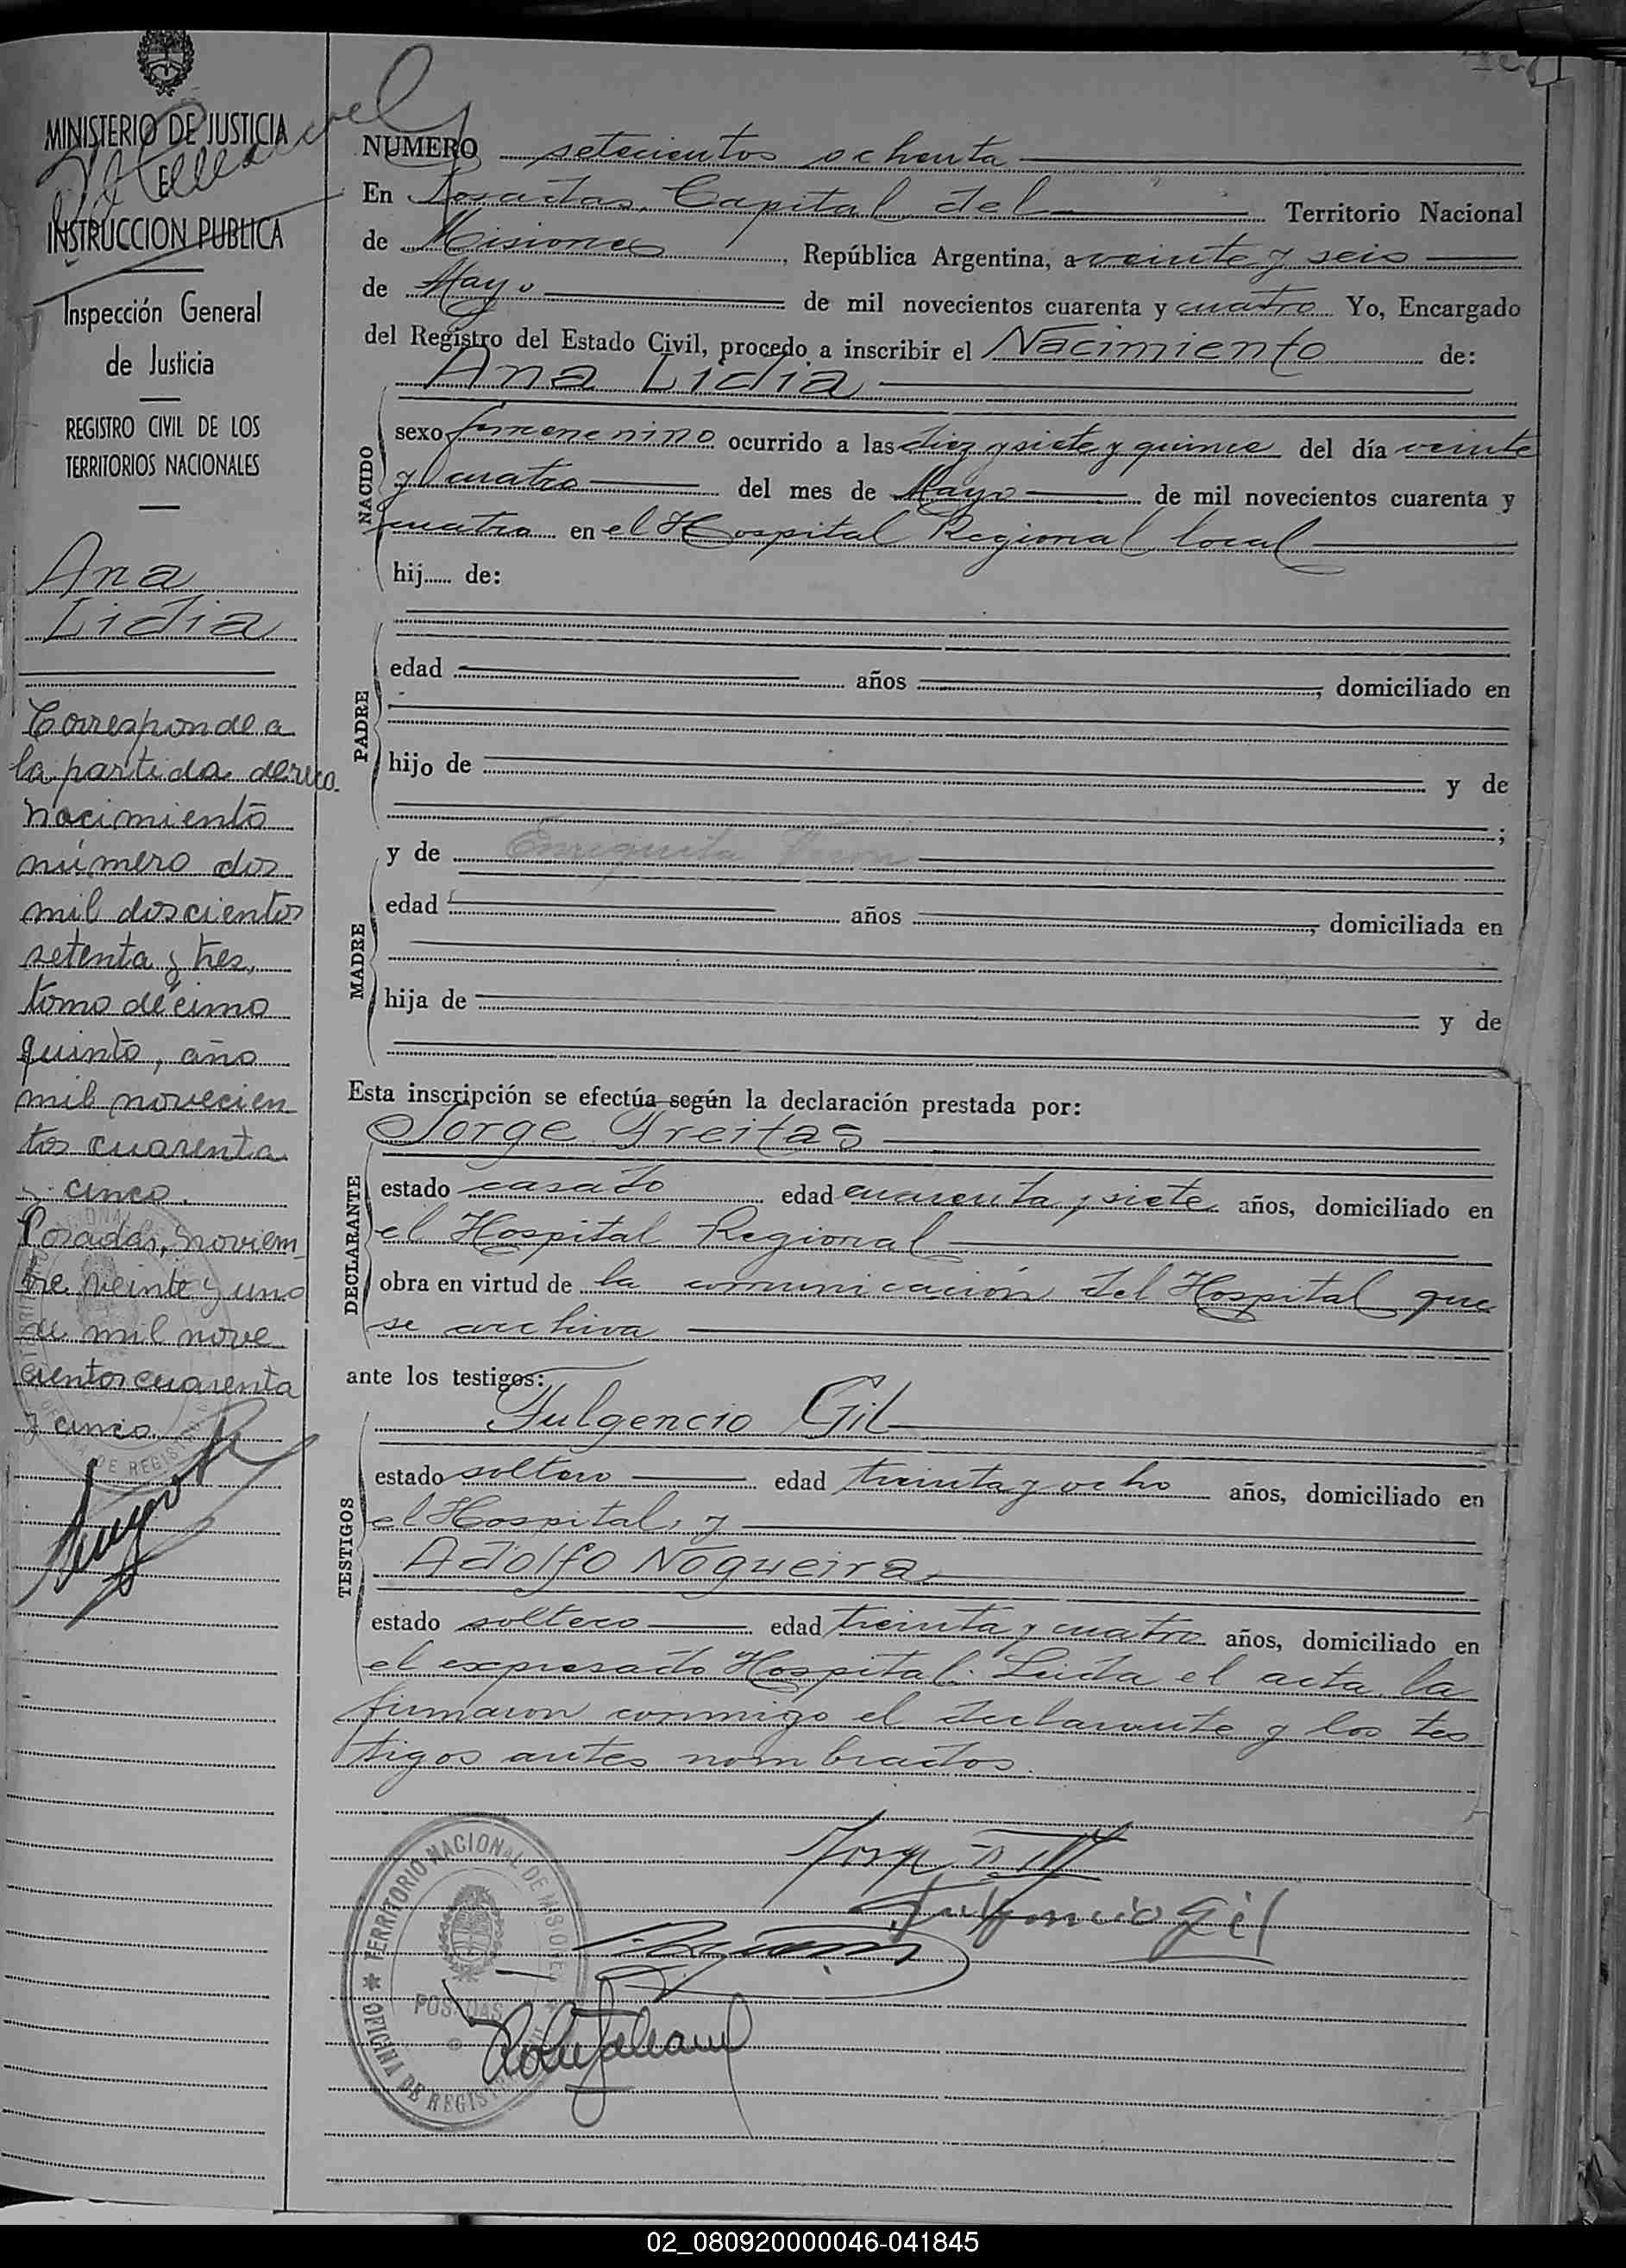 MINISTERIO DE JUSTICIA
E
INSTRUCCION PUBLICA
Inspección General
de Justicia
REGISTRO CIVIL DE LOS
TERRITORIOS NACIONALES
Ana
Lidia
Corresponde a
la partida de
nacimiento
número dos
mil doscientos
setenta y tres,
tomo décimo
quinto, año
mil novecien
tos cuarenta
y cinco.
Posadas, noviem
bre veinte y uno
de mil nove
cientos cuarenta
y cinco.
NUMERO setecientos ochenta
En Posadas, Capital del Territorio Nacional
de Misiones, República Argentina, a veinte y seis
de Mayo de mil novecientos cuarenta y cuatro Yo, Encargado
del Registro del Estado Civil, procedo a inscribir el Nacimiento de:
Ana Lidia
NACIDO
sexo femenenino ocurrido a las diez y siete y quince del día veinte
y cuatro del mes de Mayo de mil novecientos cuarenta y
cuatro en el Hospital Regional local
hij...... de:
PADRE
edad años ; domiciliado en
hijo de y de
;
y de Enriqueta
MADRE
edad años ; domiciliada en
hija de y de
Esta inscripción se efectúa según la declaración prestada por:
Jorge Freitas
DECLARANTE
estado casado edad cuarenta y siete años, domiciliado en
el Hospital Regional
obra en virtud de la comunicación del Hospital que
se archiva
ante los testigos:
Fulgencio Gil
TESTIGOS
estado soltero edad treinta y ocho años, domiciliado en
el Hospital, y
Adolfo Nogueira,
estado soltero edad treinta y cuatro años, domiciliado en
el expresado Hospital. Leída el acta, la
firmaron conmigo el declarante y los tes
tigos antes nombrados.
Fulgencio Gil
TERRITORIO NACIONAL DE MISIONES
POSADAS
OFICINA DE REGISTRO
02_080920000046-041845